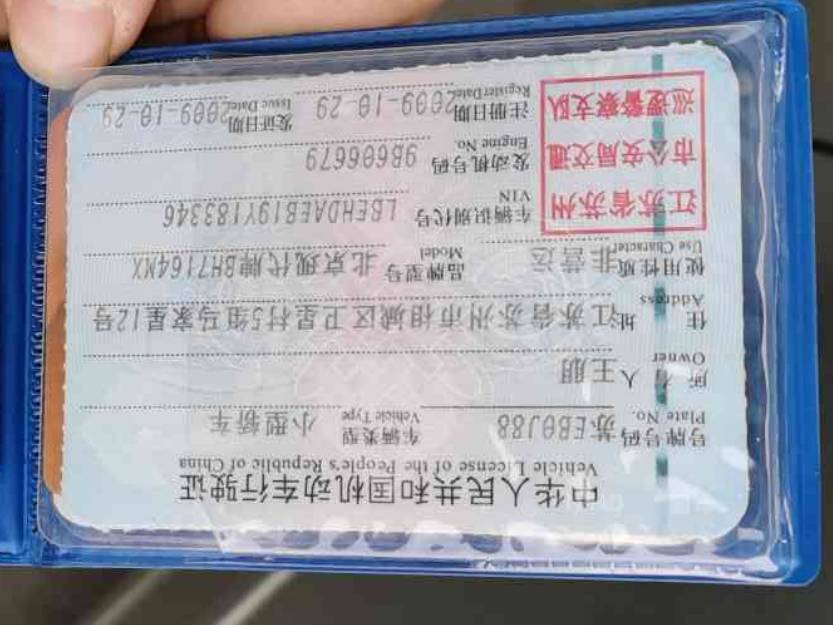 中华人民共和国机动车行驶证
Vehicle License of the People's Republic of China
号牌号码 苏EB0J88 车辆类型 小型轿车
Plate No. Vehicle Type
所有人 王朋
Owner
住址 江苏省苏州市相城区卫星村5组马家星12号
Address
使用性质 非营运 品牌型号 北京现代牌BH7164MX
Use Character Model
江苏省苏州
市公安局交通
巡逻警察支队
车辆识别代号 LBEHDAEB19Y183346
VIN
发动机号码 9B606679
Engine No.
注册日期 2009-10-29 发证日期 2009-10-29
Register Date Issue Date